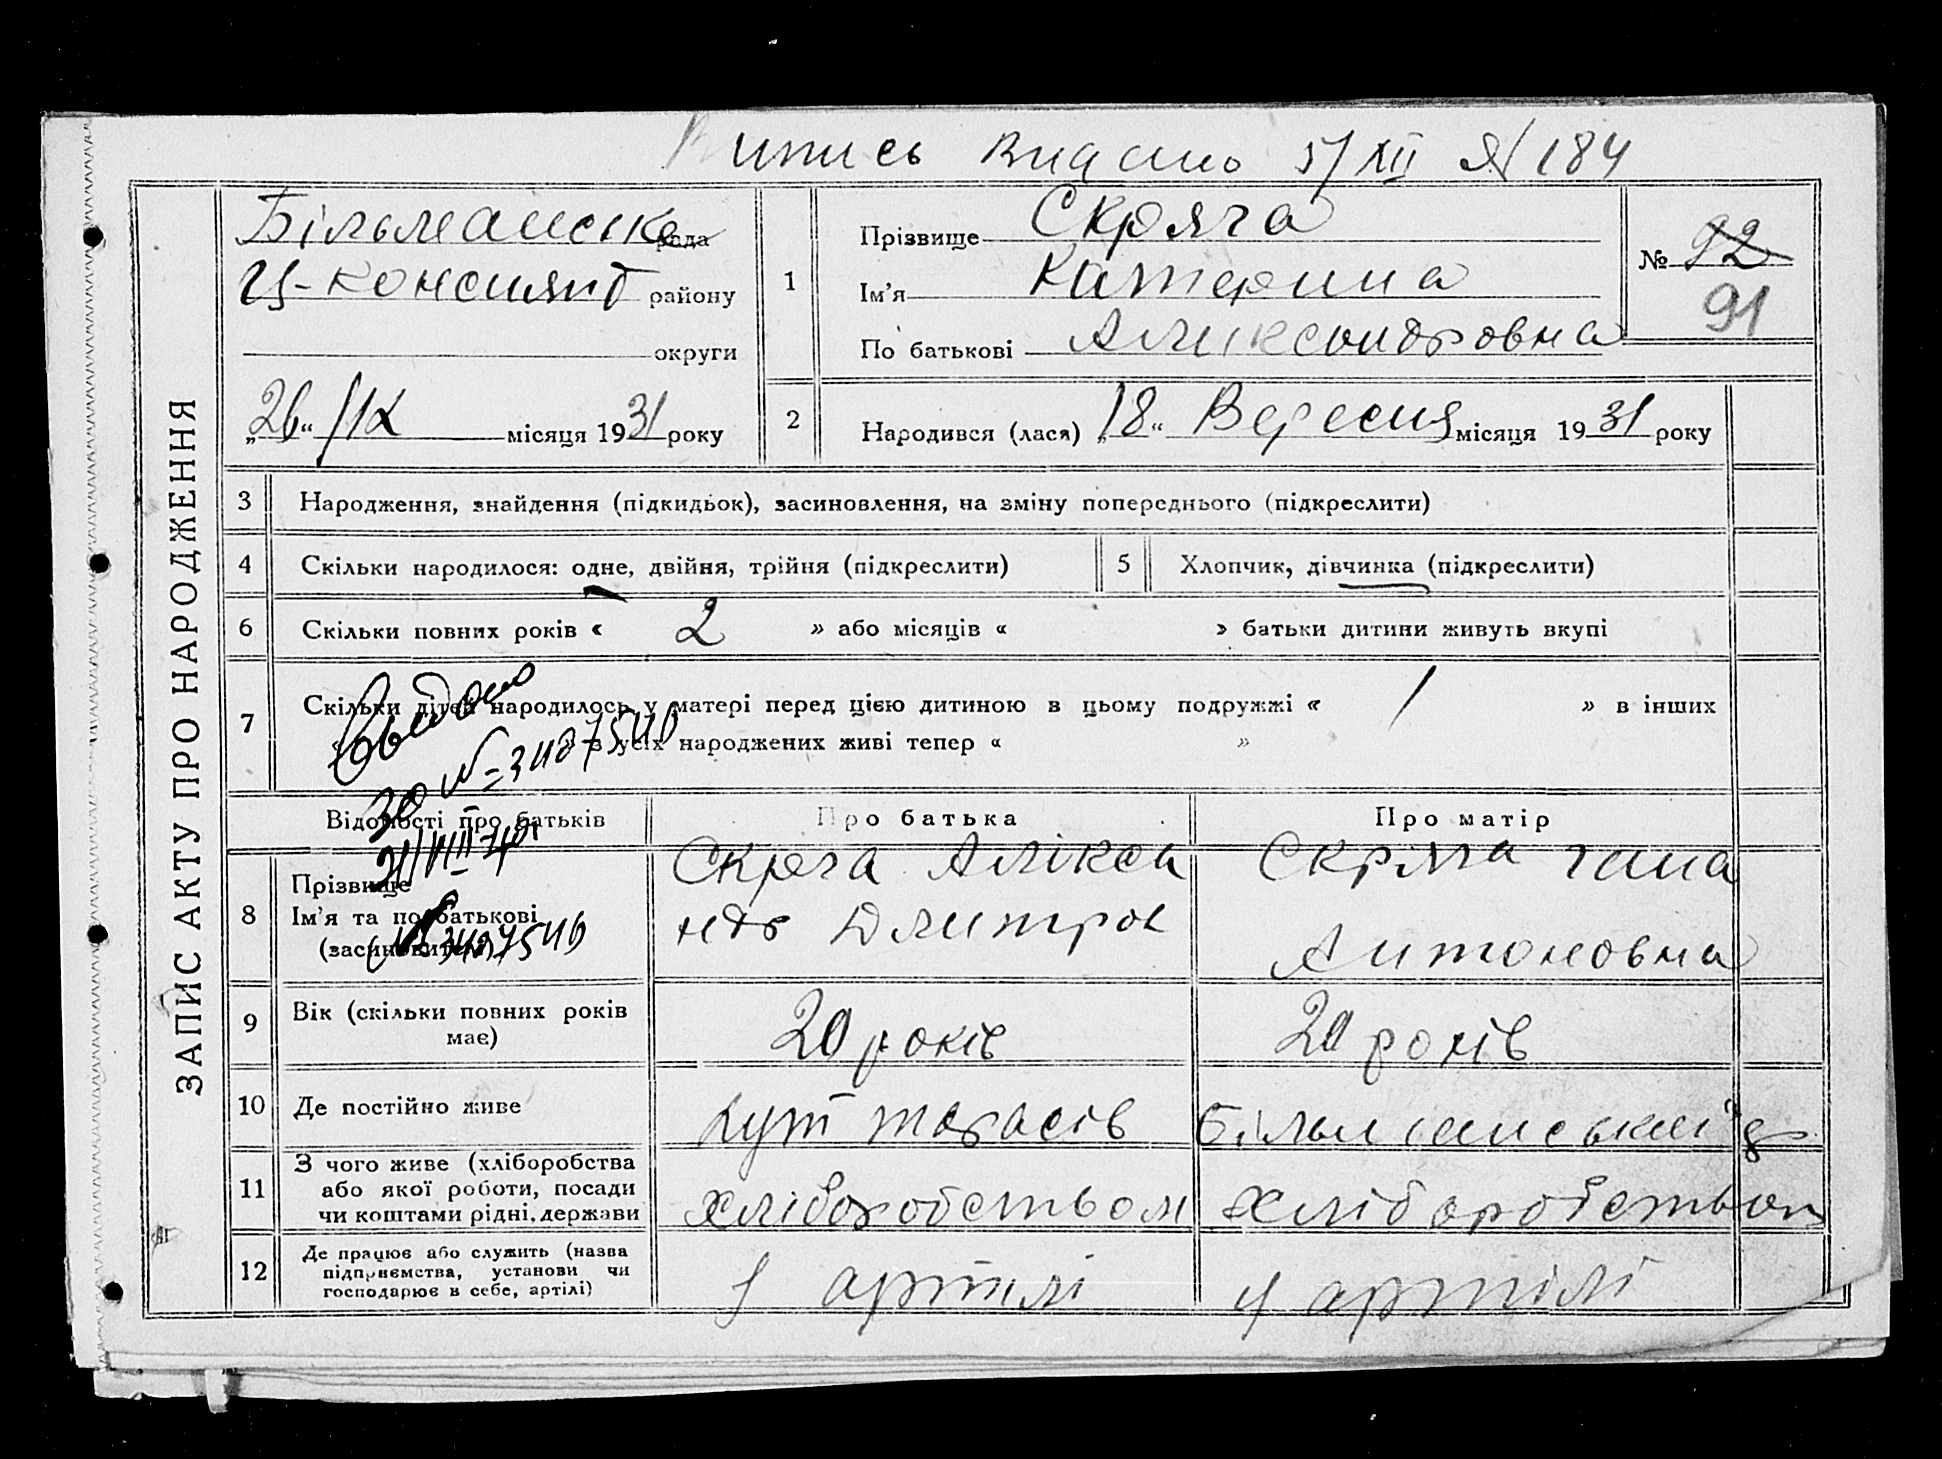 Випись видано 5/XII № 184
Більманська рада
Ц-Констянт району
округи
„26“ /IX місяця 1931 року
ЗАПИС АКТУ ПРО НАРОДЖЕННЯ
1
Прізвище Скряга
Ім'я Катерина
По батькові Аликсондровна
№ 92
91
2
Народився (лася) „18“ Вересня місяця 1931 року
3 Народження, знайдення (підкидьок), засиновлення, на зміну попереднього (підкреслити)
4 Скільки народилося: одне, двійня, трійня (підкреслити)
5 Хлопчик, дівчинка (підкреслити)
6 Скільки повних років « 2 » або місяців « » батьки дитини живуть вкупі
7 Скільки дітей народилось у матері перед цією дитиною в цьому подружжі « 1 » в інших
« » з усіх народжених живі тепер « »
Відомості про батьків
Про батька
Про матір
8
Прізвище
Ім'я та по батькові
(засиновителів)
Скряга Алікса
ндр Дмитров
Скряга гана
Антоновна
9 Вік (скільки повних років
має)
20 років
20 років
10 Де постійно живе
кут тарасів
Більманський
11 З чого живе (хліборобства
або якої роботи, посади
чи коштами рідні, держави
хліборобством
хліборобством
12 Де працює або служить (назва
підприємства, установи чи
господарює в себе, артілі)
у артілі
у артілі